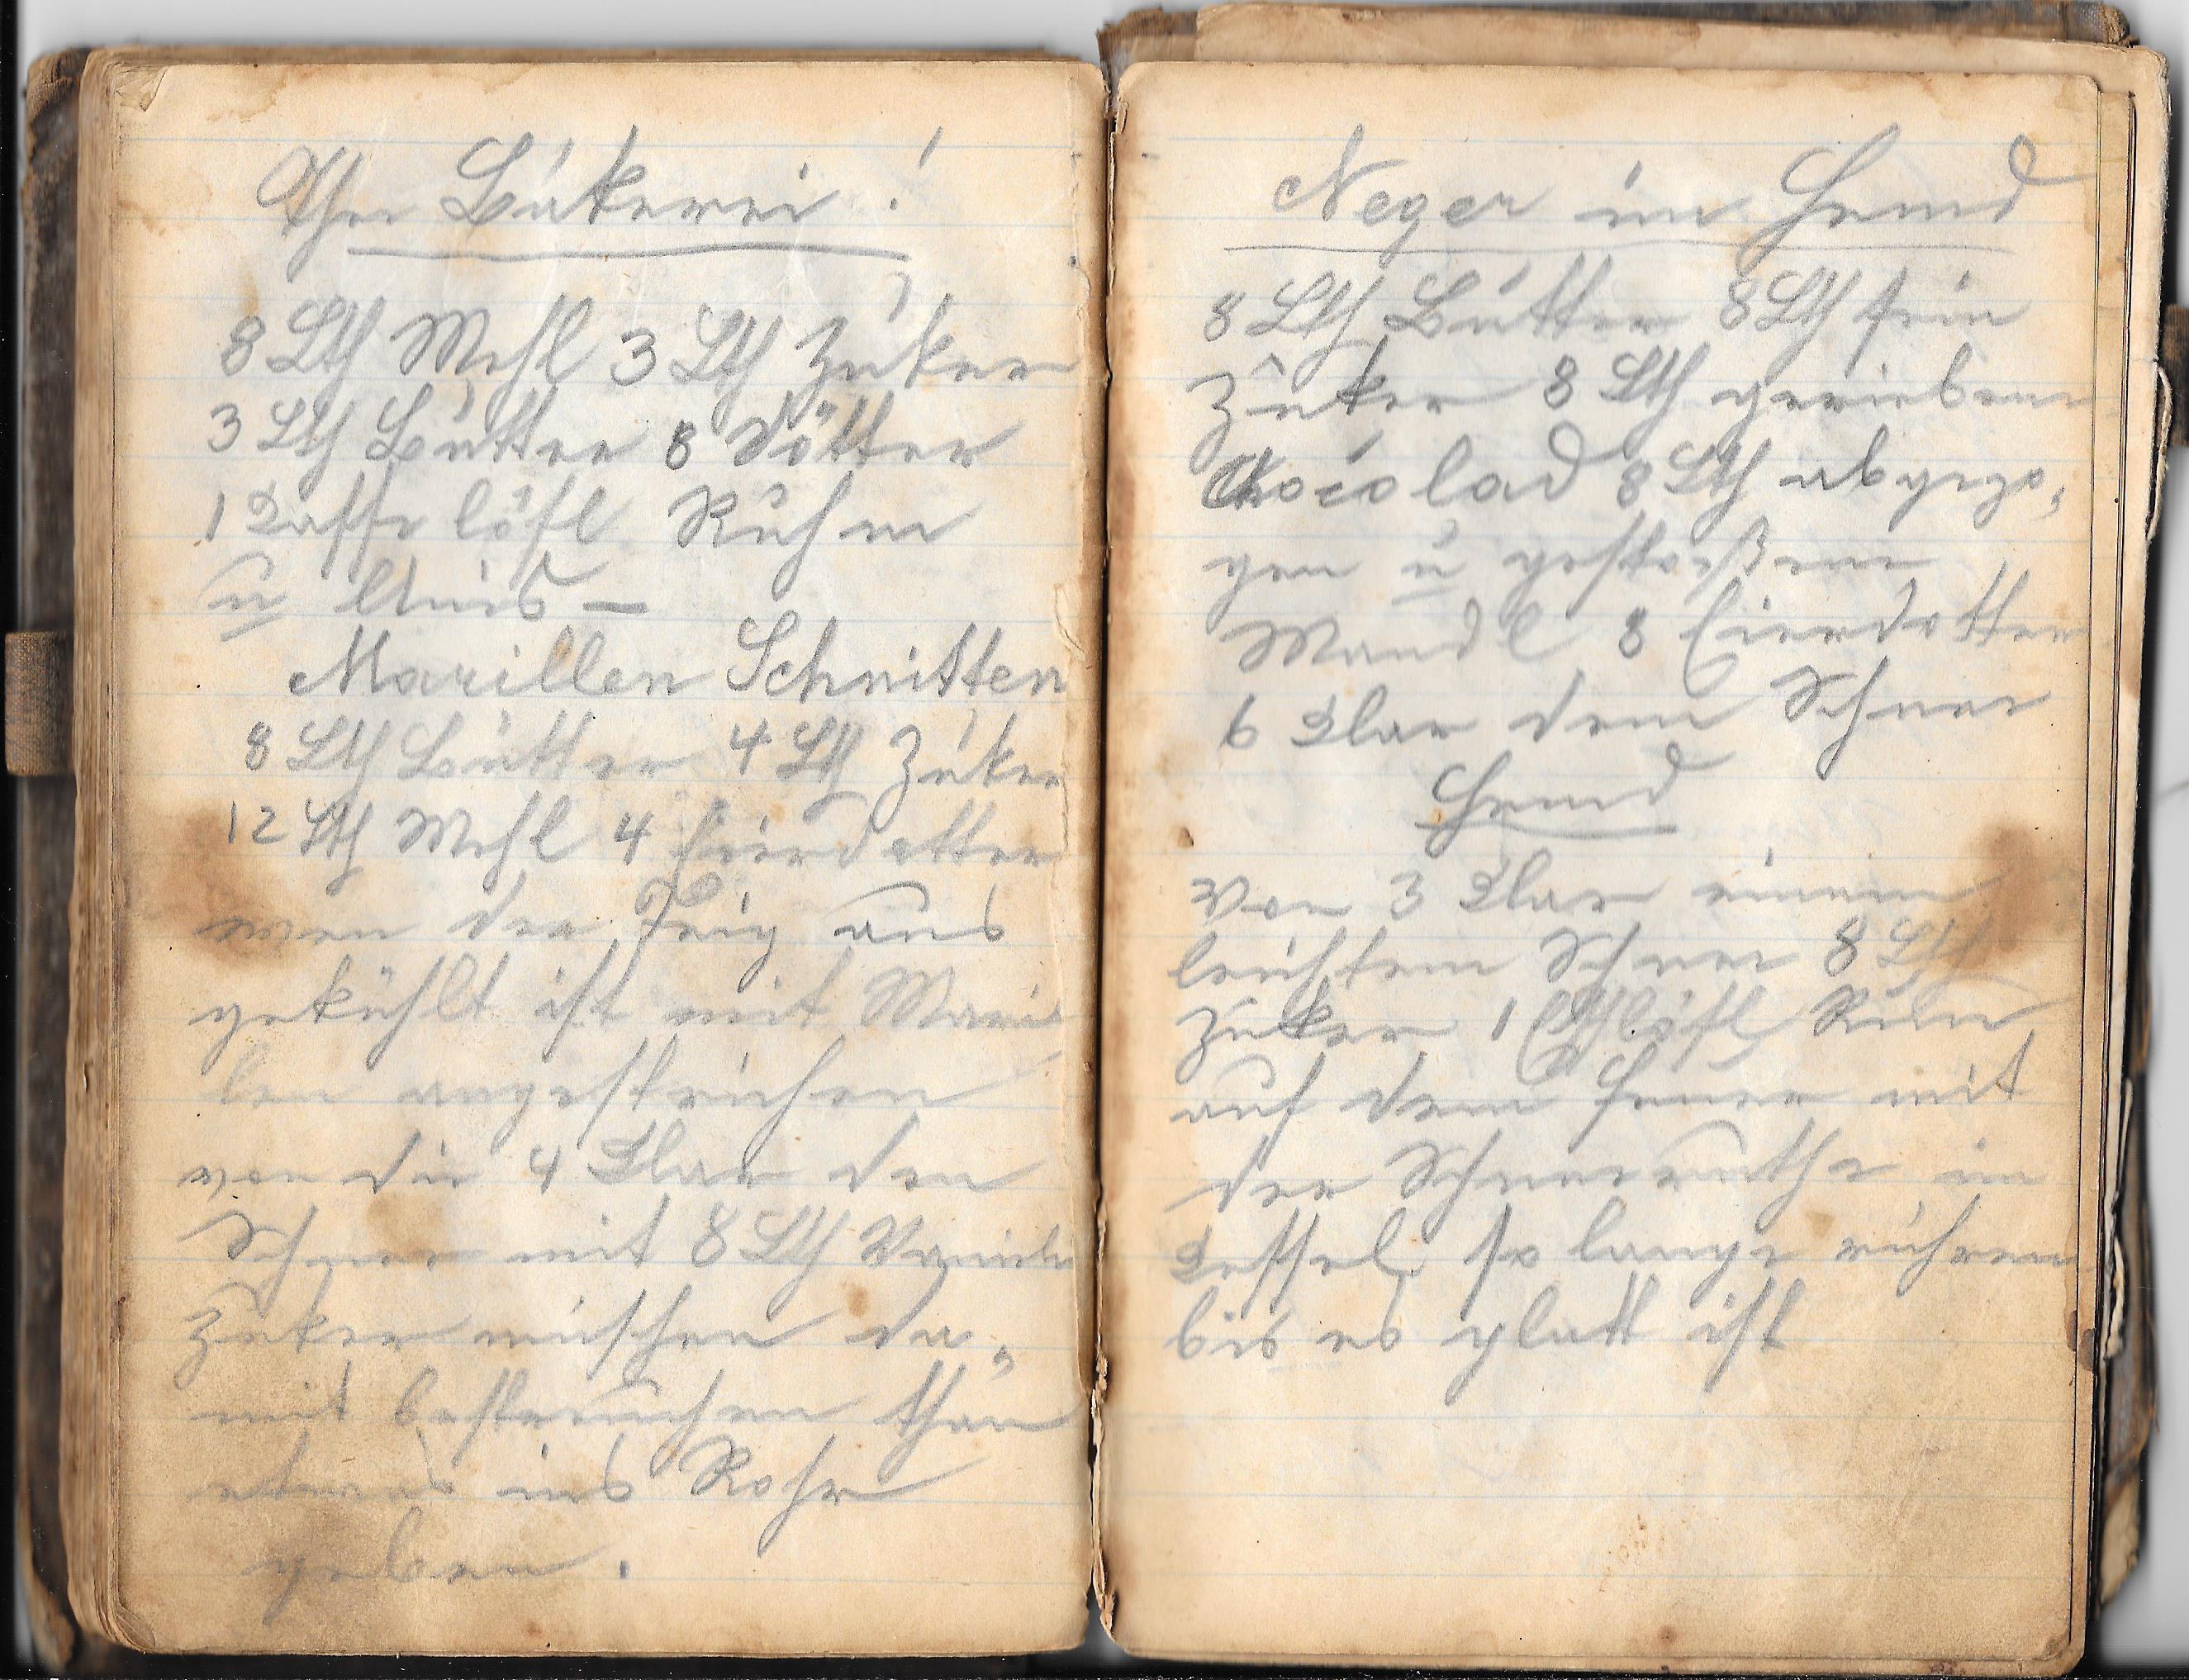 Thee Bäkerei!
8 Lth Mehl 3 Lth Zuker
3 Lth Butter 8 Dötter
1 Kaffe löfl Ruhm
u Anis —
Marillen Schnitten
8 Lth Butter 4 Lth Zuker
12 Lth Mehl 4 Eierdotter
wen der Teig aus
gekühlt ist mit Maril
len angestrichen
von die 4 Klar den
Schnee mit 8 Lth Vanile
Zuker mischen da„
mit bestreichen than
etwas ins Rohr
geben.
Neger im Hemd
8 Lth Butter 8 Lth fein
Zuker 8 Lth geriebene
Chocolad 8 Lth abgezo„
gen u gestoßene
Mandl 8 Eierdotter
6 Klar dem Schnee
Hemd
Von 3 Klar einem
leichtem Schnee 8 Lth
Zuker 1 Eßlöfl Rum
auf dem Feuer mit
der Schneeruthe im
Kessel so lange rühren
bis es glatt ist